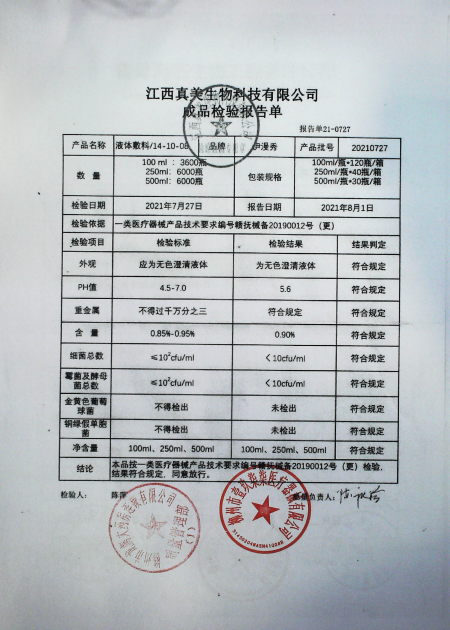 江西真美生物科技有限公司
成品检验报告单
报告单21-0727
产品名称 液体敷料/14-10-08 品牌 伊漫秀 产品批号 20210727
数 量 100 ml : 3600瓶 250ml: 6000瓶 500ml: 6000瓶 包装规格 100ml/瓶*120瓶/箱 250ml/瓶*40瓶/箱 500ml/瓶*30瓶/箱
检验日期 2021年7月27日 报告日期 2021年8月1日
检验依据 一类医疗器械产品技术要求编号赣抚械备20190012号（更）
检验项目 检验标准 检验结果 结果判定
外观 应为无色澄清液体 为无色澄清液体 符合规定
PH值 4.5-7.0 5.6 符合规定
重金属 不得过千万分之三 符合规定 符合规定
含 量 0.85%-0.95% 0.90% 符合规定
细菌总数 ≤10²cfu/ml ＜10cfu/ml 符合规定
霉菌及酵母菌总数 ≤10²cfu/ml ＜10cfu/ml 符合规定
金黄色葡萄球菌 不得检出 未检出 符合规定
铜绿假单胞菌 不得检出 未检出 符合规定
净含量 100ml、250ml、500ml 100ml、250ml、500ml 符合规定
结论 本品按一类医疗器械产品技术要求编号赣抚械备20190012号（更）检验，
结果符合规定，同意放行。
检验人： 陈萍 负责人：